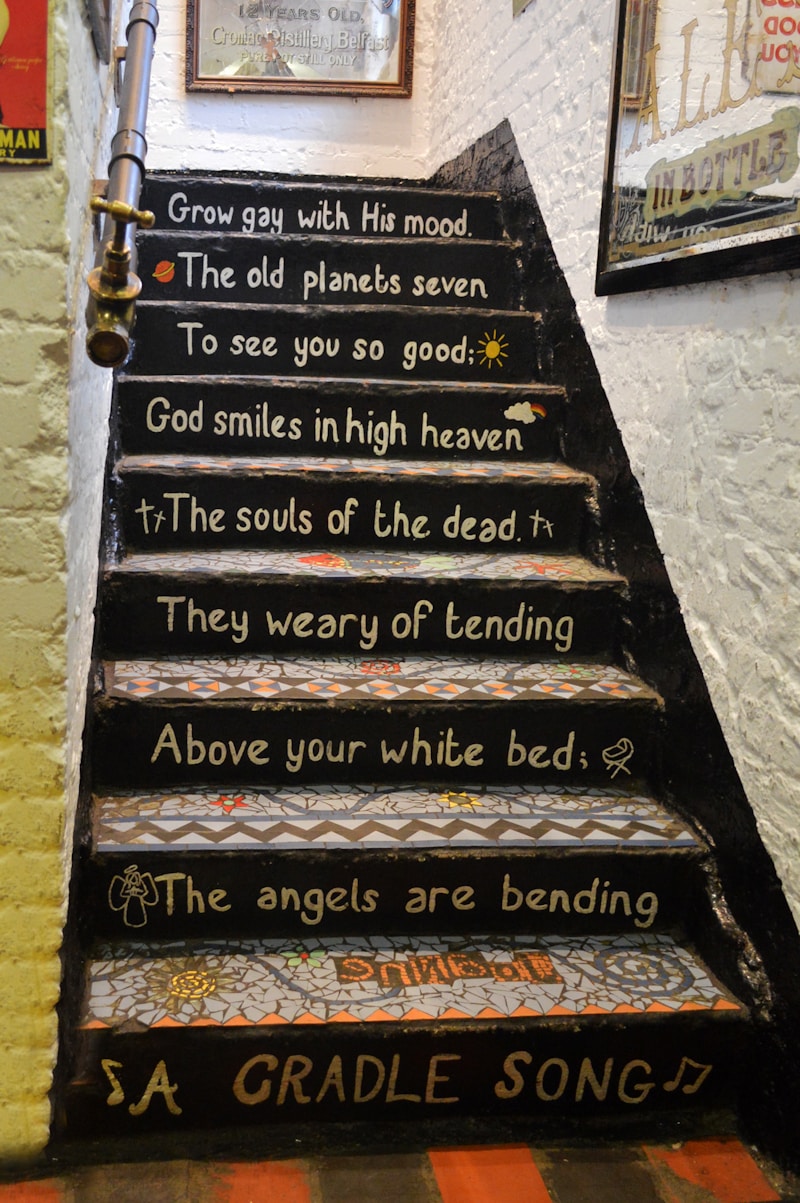 12 YEARS OLD.
Cromac Distillery Belfast
PURE POT STILL ONLY
MAN
RY
ALE
IN BOTTLE
Grow gay with His mood.
The old planets seven
To see you so good;
God smiles in high heaven
The souls of the dead.
They weary of tending
Above your white bed;
The angels are bending
A CRADLE SONG